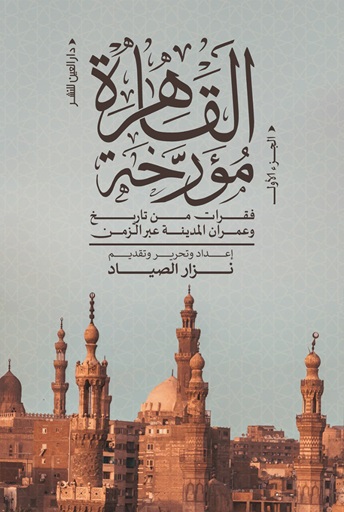 دار العين للنشر
القاهرة
مؤرخة
الجزء الأول
فقرات من تاريخ
وعمران المدينة عبر الزمن
إعداد وتحرير وتقديم
نزار الصياد